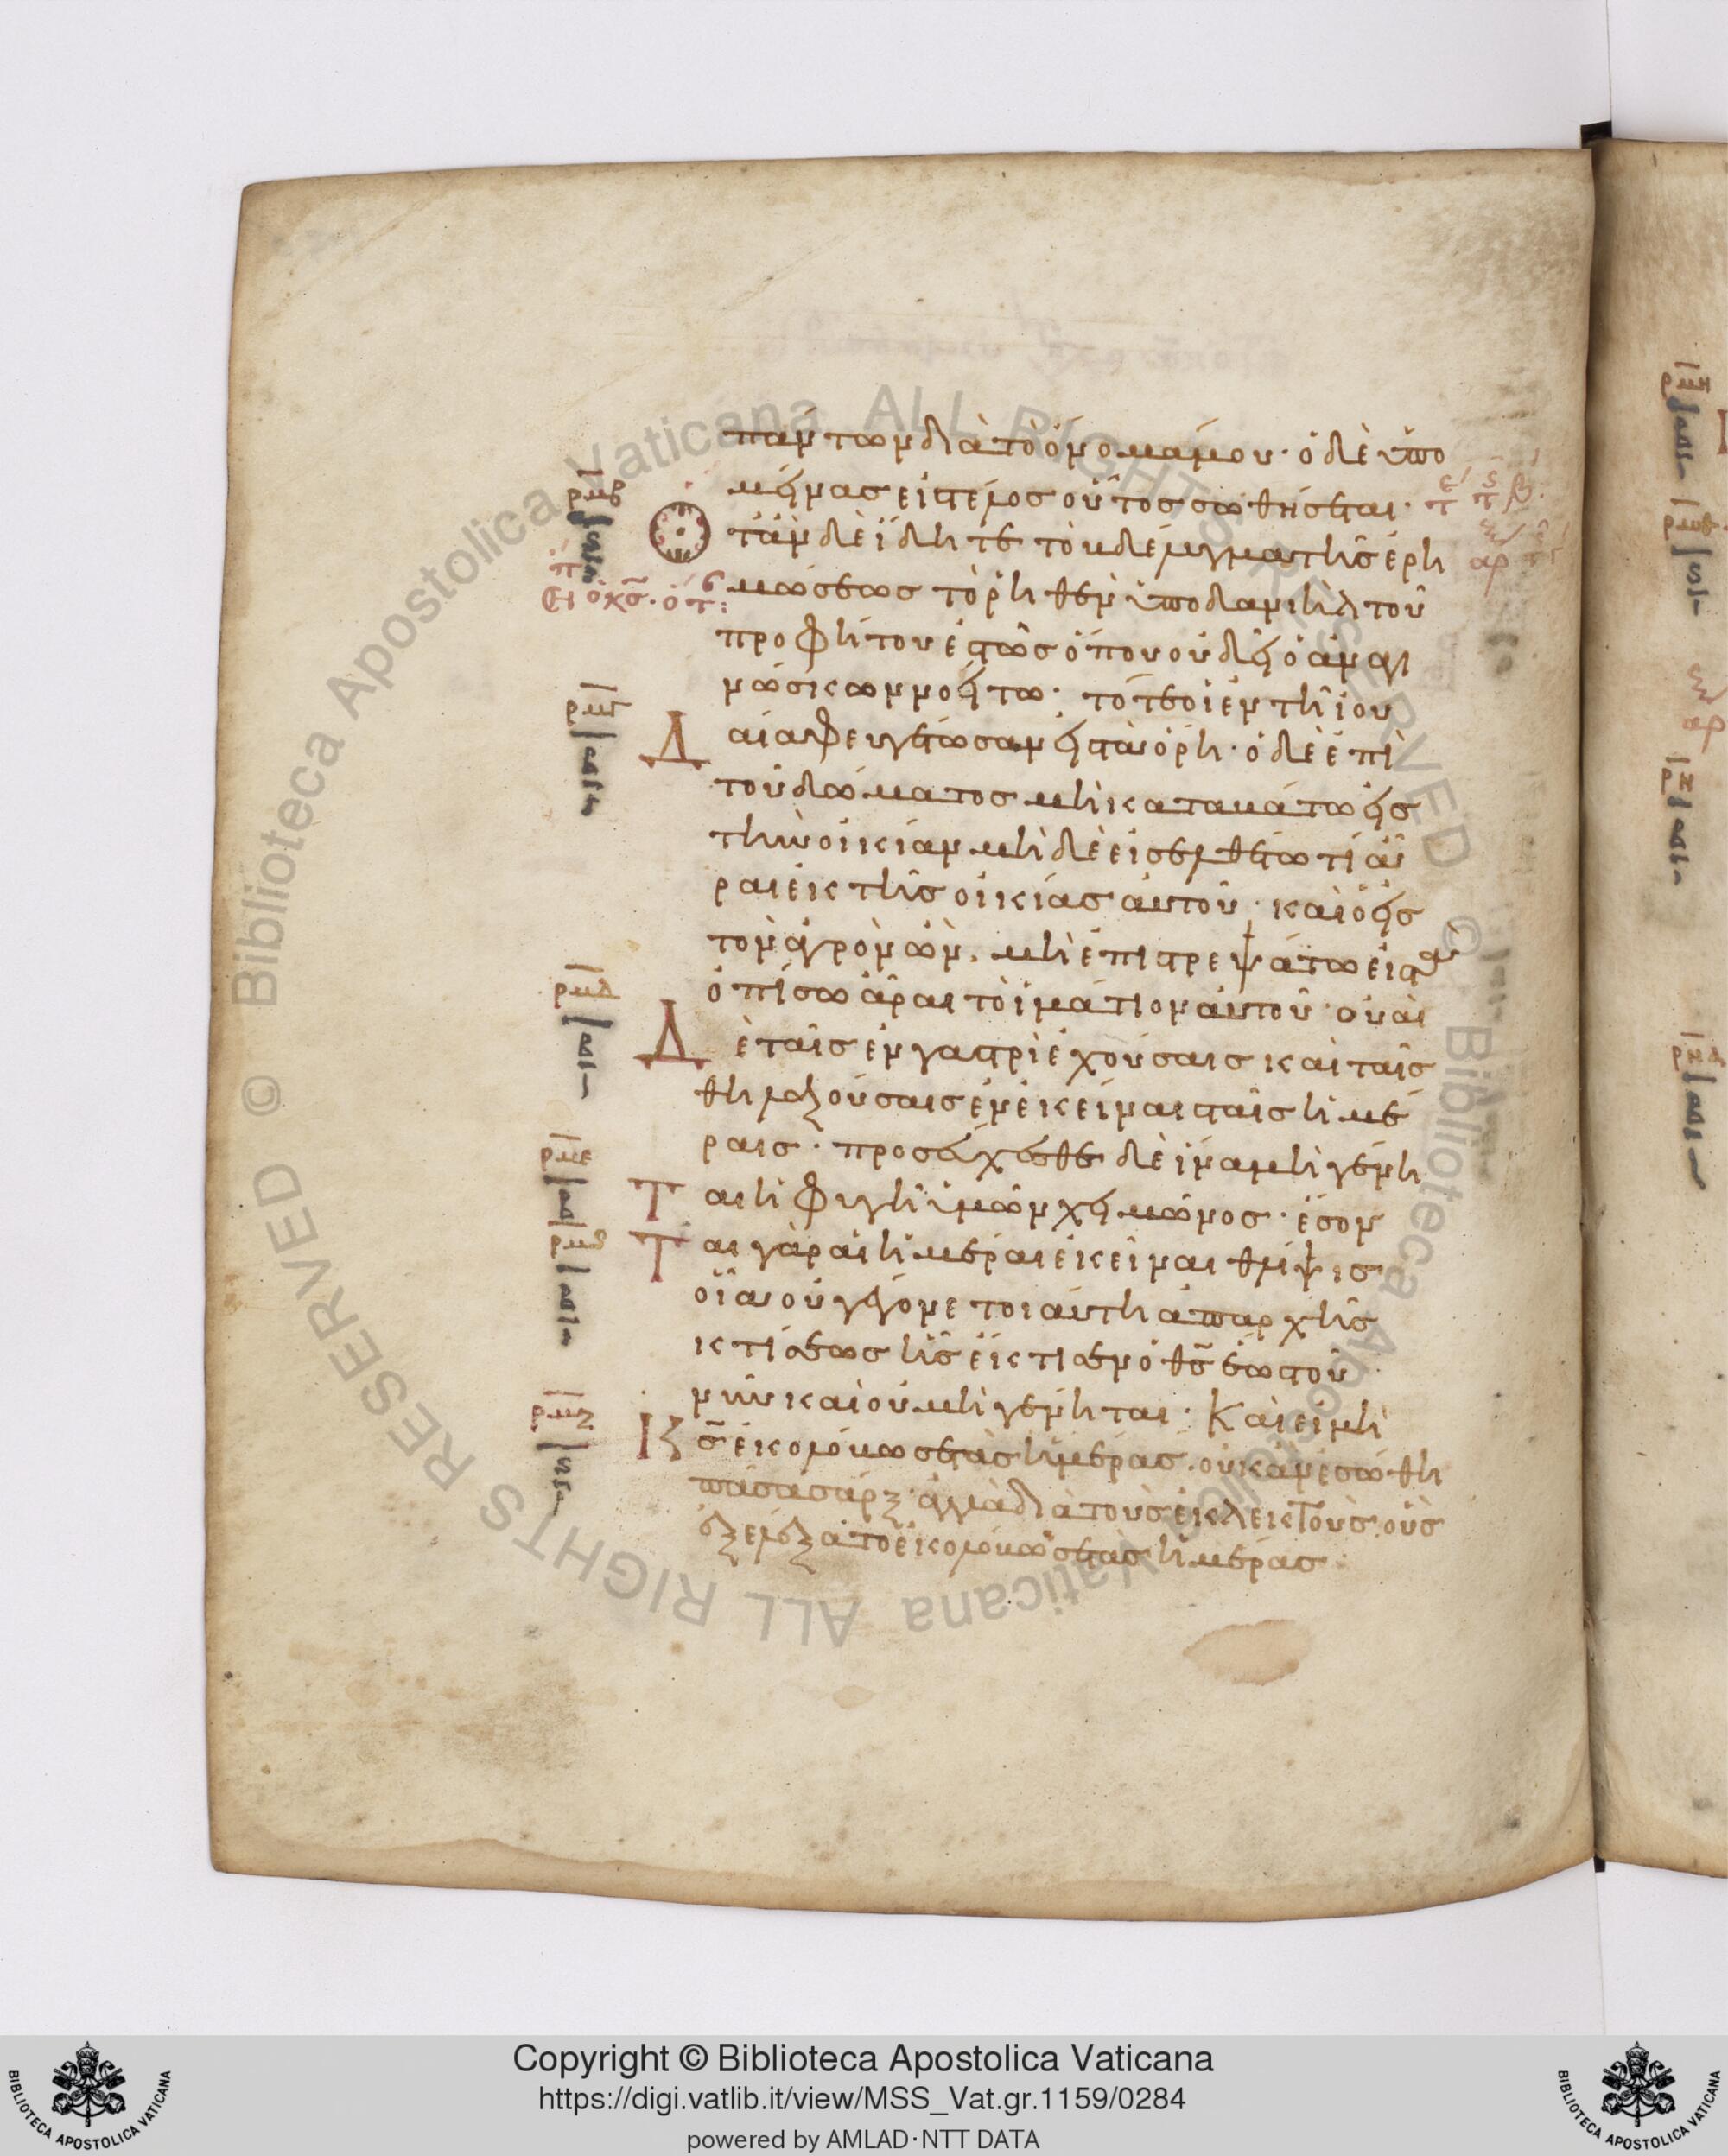 πάντων διὰ τὸ ὄνομά μου· ὁ δὲ ὑπο
μείνας εἰς τέλος οὗτος σωθήσεται·
Ὅταν δὲ ἴδητε τὸ βδέλυγμα τῆς ἐρη
μώσεως τὸ ῥηθὲν ὑπὸ δανιὴλ τοῦ
προφήτου ἑστὼς ὅπου οὐ δεῖ ὁ ἀναγι
νώσκων νοείτω· τότε οἱ ἐν τῆ ἰου
Δαία φευγέτωσαν εἰς τὰ ὄρη· ὁ δὲ ἐπὶ
τοῦ δώματος μὴ καταβάτω εἰς
τὴν οἰκίαν μὴ δὲ εἰσελθέτω τί ἆ
ραι ἐκ τῆς οἰκίας αὐτοῦ· καὶ ὁ εἰς
τὸν ἀγρὸν ὢν. μὴ ἐπιστρεψάτω εἰς τὰ
ὀπίσω ἆραι τὸ ἱμάτιον αὐτοῦ· οὐαὶ
Δὲ ταῖς ἐν γαστρὶ ἐχούσαις καὶ ταῖς
θηλαζούσαις ἐν ἐκείναις ταῖς ἡμέ
ραις· προσεύχεσθε δὲ ἵνα μὴ γένη
Ται ἡ φυγὴ ὑμῶν χειμῶνος· ἔσον
Ται γὰρ αἱ ἡμέραι ἐκεῖναι θλίψις
οἵα οὐ γέγονε τοιαύτη ἀπαρχῆς
κτίσεως ἧς ἔκτισεν ὁ θς ἕως τοῦ
νῦν καὶ οὐ μὴ γένηται· Καὶ εἰ μὴ
Κς ἐκολόβωσε τὰς ἡμέρας. οὐκ ἂν ἐσώθη
πᾶσα σάρξ· ἀλλὰ διὰ τοὺς ἐκλεκτοὺς οὓς
ἐξελέξατο ἐκολόβωσε τὰς ἡμέρας·
ρμβ
ρμγ
ρμδ
ρμε
ρμς
ρμζ
Copyright © Biblioteca Apostolica Vaticana
https://digi.vatlib.it/view/MSS_Vat.gr.1159/0284
powered by AMLAD·NTT DATA
BIBLIOTECA APOSTOLICA VATICANA
BIBLIOTECA APOSTOLICA VATICANA
© Biblioteca Apostolica Vaticana ALL RIGHTS RESERVED
© Biblioteca Apostolica Vaticana ALL RIGHTS RESERVED